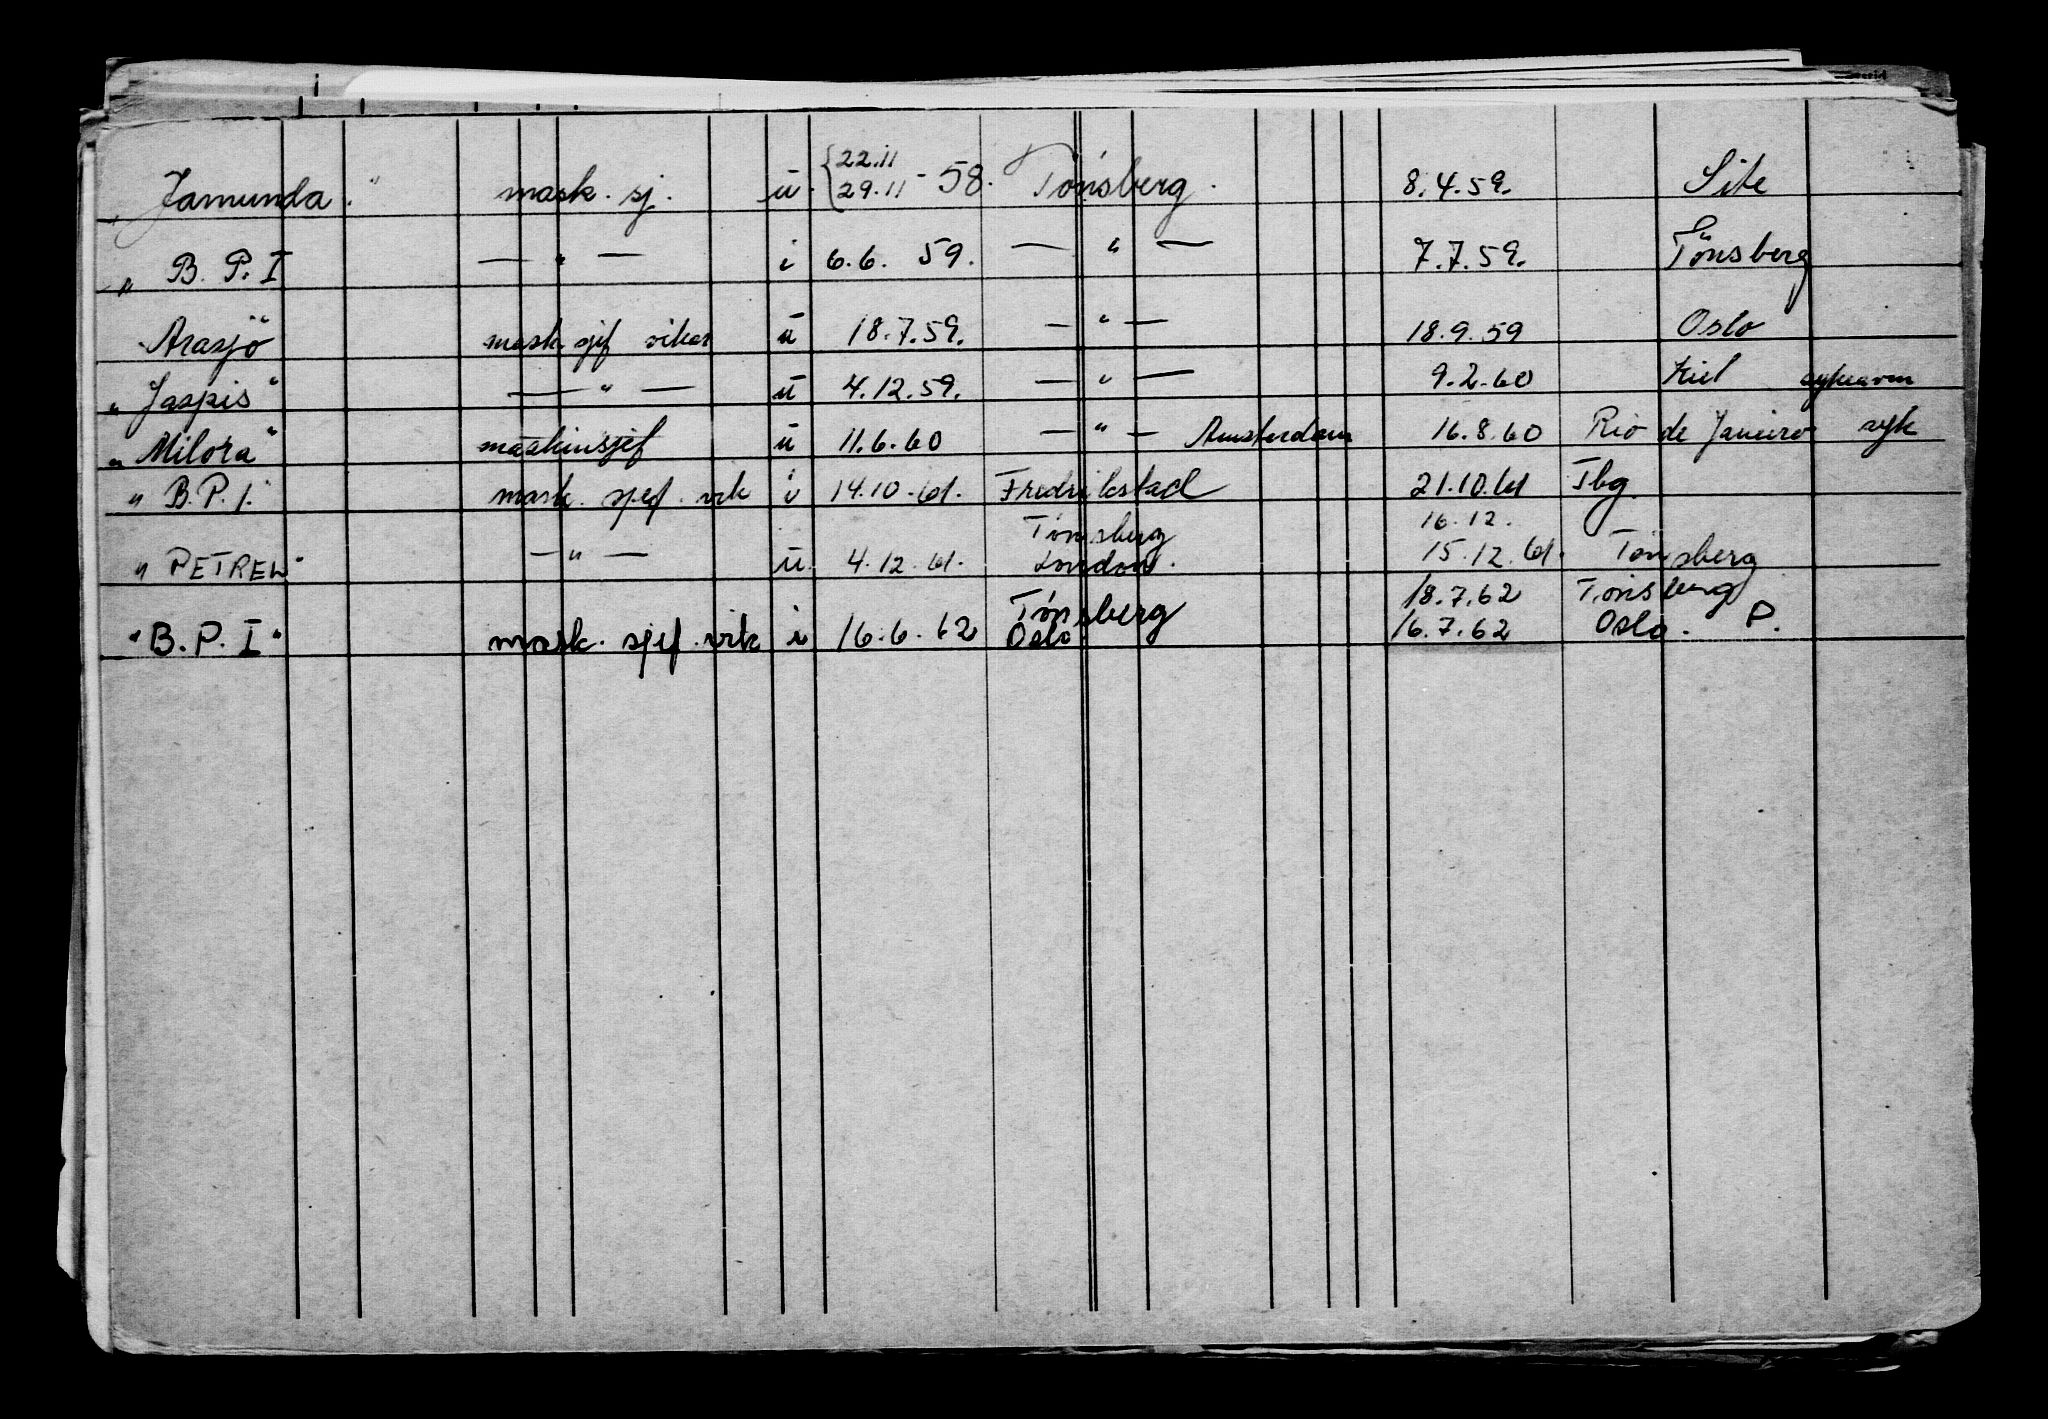 „Jamunda." mask. sj. u. {22.11 29.11 - 58. Tønsberg. 8.4.59. Site
„B. P. I — " — i 6.6. 59. — " — 7.7.59. Tønsberg
Arasjö" mask sjef vikar u 18.7.59. — " — 18.9.59 Oslo
„Jaspis" — " — u 4.12.59. — " — 9.2.60 Kiel
„Milora" maskinsjef u 11.6.60 — " — Amsterdam 16.8.60 Rio de Janeiro syk
"B.P.I. mask. sjef. vik i 14.10.61. Fredrikstad 21.10.61 Tbg.
"PETREL" — " — u. 4.12.61. Tønsberg London. 16.12. 15.12.61. Tønsberg
"B.P.I" mask. sjef. vik i 16.6.62 Tønsberg Oslo 18.7.62 Tønsberg 16.7.62 Oslo. P.